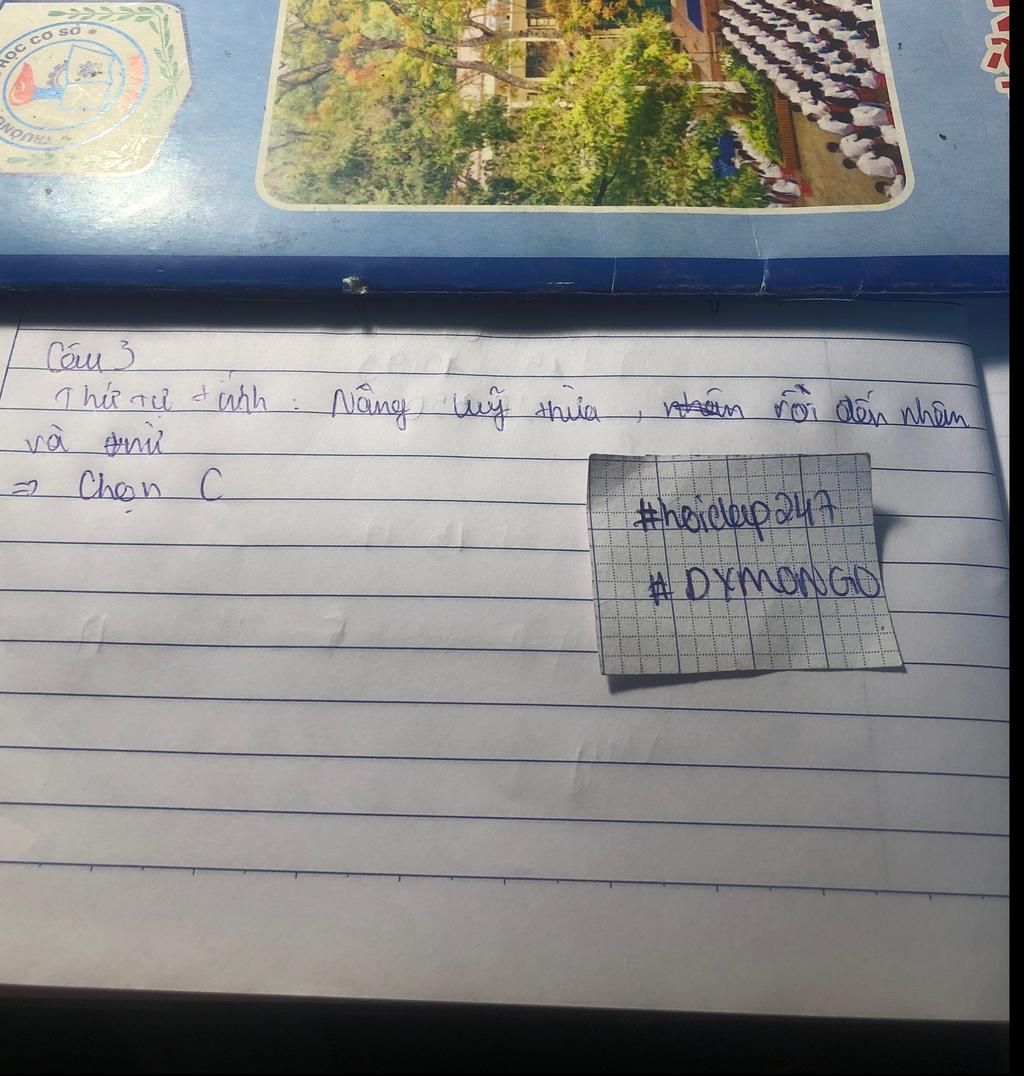 HỌC CƠ SỞ
TRƯỜNG
Câu 3
Thứ tự tính : Nâng luỹ thừa , nhân rồi đến nhân
và trừ
=> Chọn C
#hoidap247
# DYMONGO